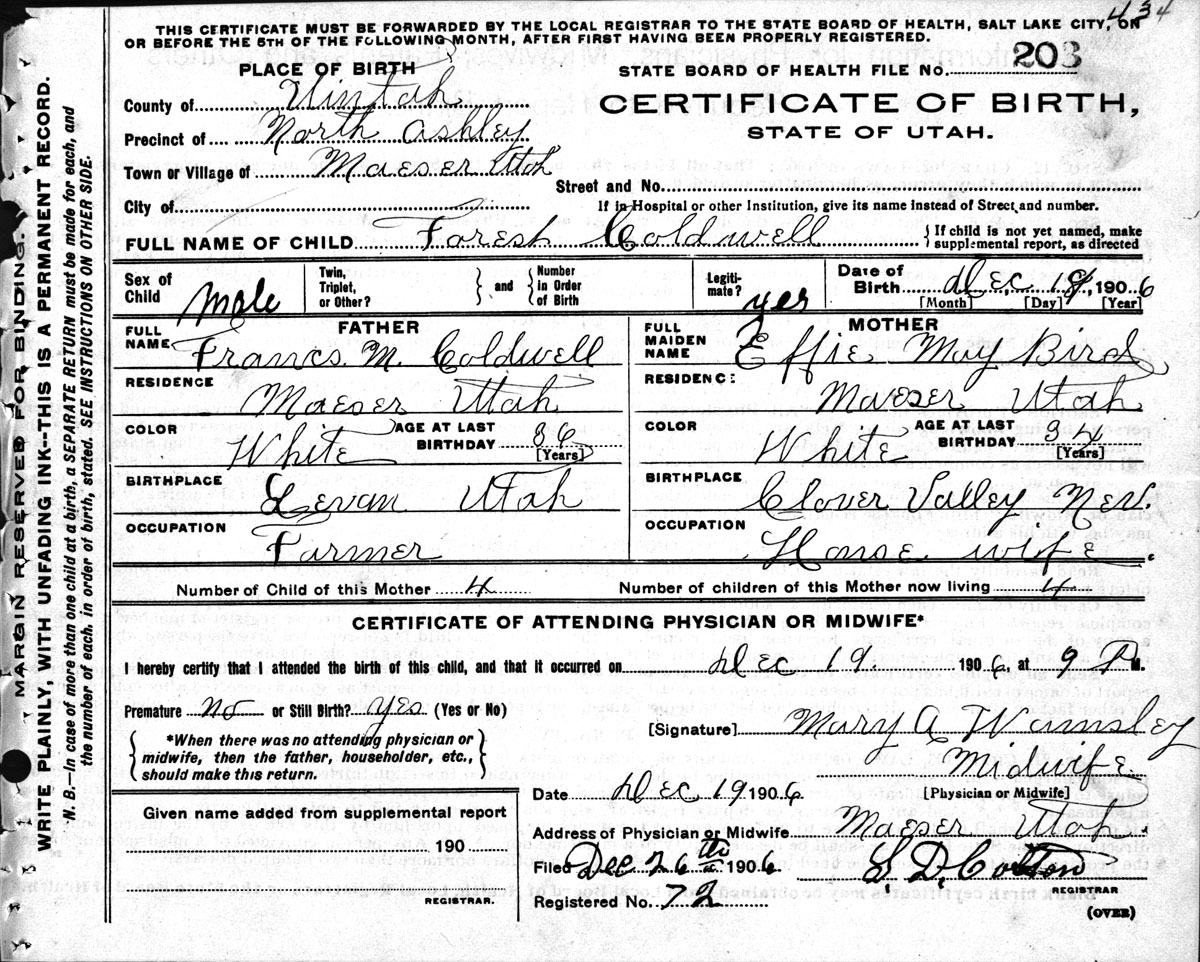 434
THIS CERTIFICATE MUST BE FORWARDED BY THE LOCAL REGISTRAR TO THE STATE BOARD OF HEALTH, SALT LAKE CITY, ON
OR BEFORE THE 5TH OF THE FOLLOWING MONTH, AFTER FIRST HAVING BEEN PROPERLY REGISTERED.
PLACE OF BIRTH
STATE BOARD OF HEALTH FILE No. 203
County of Uintah
CERTIFICATE OF BIRTH,
Precinct of North Ashley
STATE OF UTAH.
Town or Village of Maeser Utah
Street and No.
City of
If in Hospital or other Institution, give its name instead of Street and number.
FULL NAME OF CHILD Forest Coldwell { If child is not yet named, make supplemental report, as directed
Sex of Child Male Twin, Triplet, or Other? } and { Number in Order of Birth Legitimate? yes Date of Birth Dec 19, 1906
[Month] [Day] [Year]
FATHER
FULL NAME Francs. M. Coldwell
RESIDENCE Maeser Utah
COLOR White AGE AT LAST BIRTHDAY 36 [Years]
BIRTHPLACE Levan Utah
OCCUPATION Farmer
MOTHER
FULL MAIDEN NAME Effie May Bird
RESIDENCE Maeser Utah
COLOR White AGE AT LAST BIRTHDAY 34 [Years]
BIRTHPLACE Clover Valley Nev.
OCCUPATION House wife.
Number of Child of this Mother 4 Number of children of this Mother now living 4
CERTIFICATE OF ATTENDING PHYSICIAN OR MIDWIFE*
I hereby certify that I attended the birth of this child, and that it occurred on Dec 19 1906, at 9 P M.
Premature no or Still Birth? yes (Yes or No)
{ *When there was no attending physician or
midwife, then the father, householder, etc.,
should make this return. }
[Signature] Mary A Wamsley
Midwife
[Physician or Midwife]
Date Dec 19 1906
Address of Physician or Midwife Maeser Utah.
Filed Dec 26th 1906 S. D. Colton
REGISTRAR
Registered No. 72
(OVER)
Given name added from supplemental report
190
REGISTRAR.
MARGIN RESERVED FOR BINDING.
WRITE PLAINLY, WITH UNFADING INK--THIS IS A PERMANENT RECORD.
N. B.--In case of more than one child at a birth, a SEPARATE RETURN must be made for each, and
the number of each, in order of birth, stated. SEE INSTRUCTIONS ON OTHER SIDE.